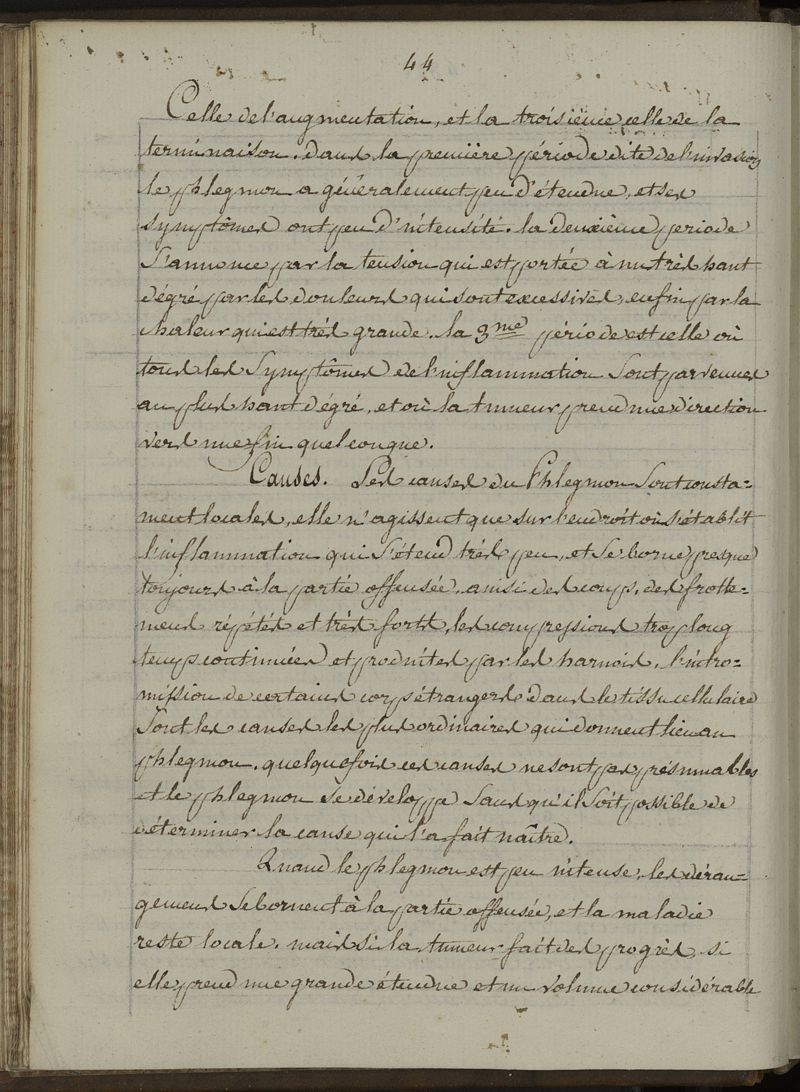 44
Celle de l'augmentation, et la troisième celle de la
terminaison. dans la première période dite de l'invasion
le phlegmon a généralement peu d'étendue, et ses
symptômes ont peu d'intensité. la deuxième periode
s'annonce par la tension qui est portée à un très haut
dégré par les douleurs qui sont excessives, enfin par la
chaleur qui est très grande. la 3me période est celle où
tous les symptômes de l'inflammation sont parvenues
au plus haut dégré, et où la tumeur prend une direction
vers une fin quelconque.
Causes. Les causes du Phlegmon sont consta=
ment locales, elle n'agissent que sur l'endroit où s'établit
l'inflammation qui s'étend très peu, et se borne presque
toujours à la partie offensée. ainsi des coups, des frotte=
mens répétés et très forts, les compressions trop long
temps continuées et produites par les harnois, l'intro=
mission de certains corps étrangers dans le tissu cellulaire
sont les causes les plus ordinaires qui donnent lieu au
phlegmon. quelquefois ces causes ne sont pas présumables
et le phlegmon se développe sans qu'il soit possible de
déterminer la cause qui l'a fait naître.
Quand le phlegmon est peu intense, les déran=
gemens se bornent à la partie offensée, et la maladie
reste locale. mais si la tumeur fait des progrès, si
elle prend une grande étendue et un volume considérable